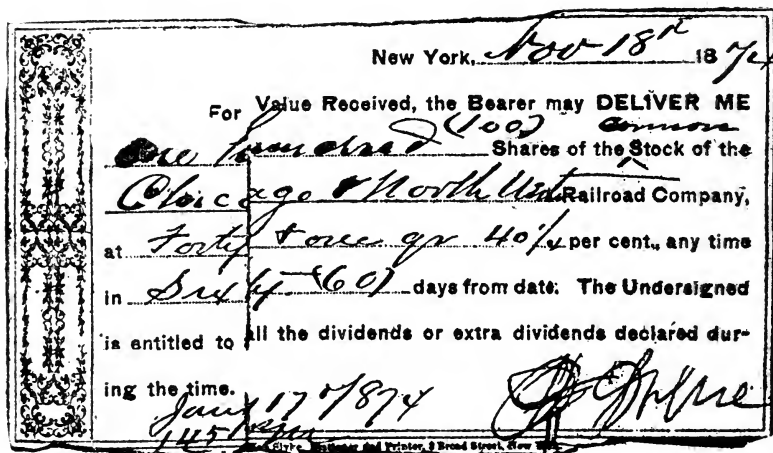 New York, Nov 18th 1874
For Value Received, the Bearer may DELIVER ME
One hundred (100) Shares of the common Stock of the
Chicago & North West Railroad Company,
at Forty & one qr 40¼ per cent., any time
in Sixty (60) days from date. The Undersigned
is entitled to all the dividends or extra dividends declared dur-
ing the time.
Jany 17 1874
145
Stationer and Printer, 8 Broad Street, New